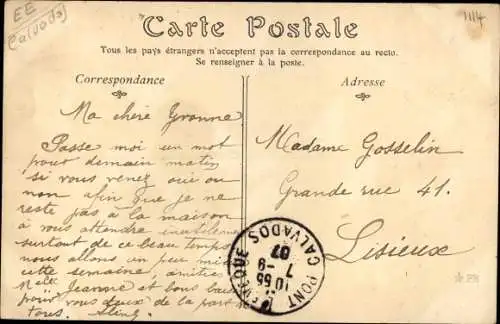 EE
Calvados
1114
Carte Postale
Tous les pays étrangers n'acceptent pas la correspondance au recto.
Se renseigner à la poste.
Correspondance
Adresse
Ma chère Yvonne
Passe moi un mot
pour demain matin
si vous venez oui ou
non afin que je ne
reste pas à la maison
à vous attendre inutilement
surtout de ce beau temps
nous allons un peu
cette semaine, amitiés
Jeanne et bons baisers
pour vous deux de la part de
tous.
Madame Gosselin
Grande rue 41.
Lisieux
PONT L'EVEQUE
CALVADOS
10 55
7 -9
07